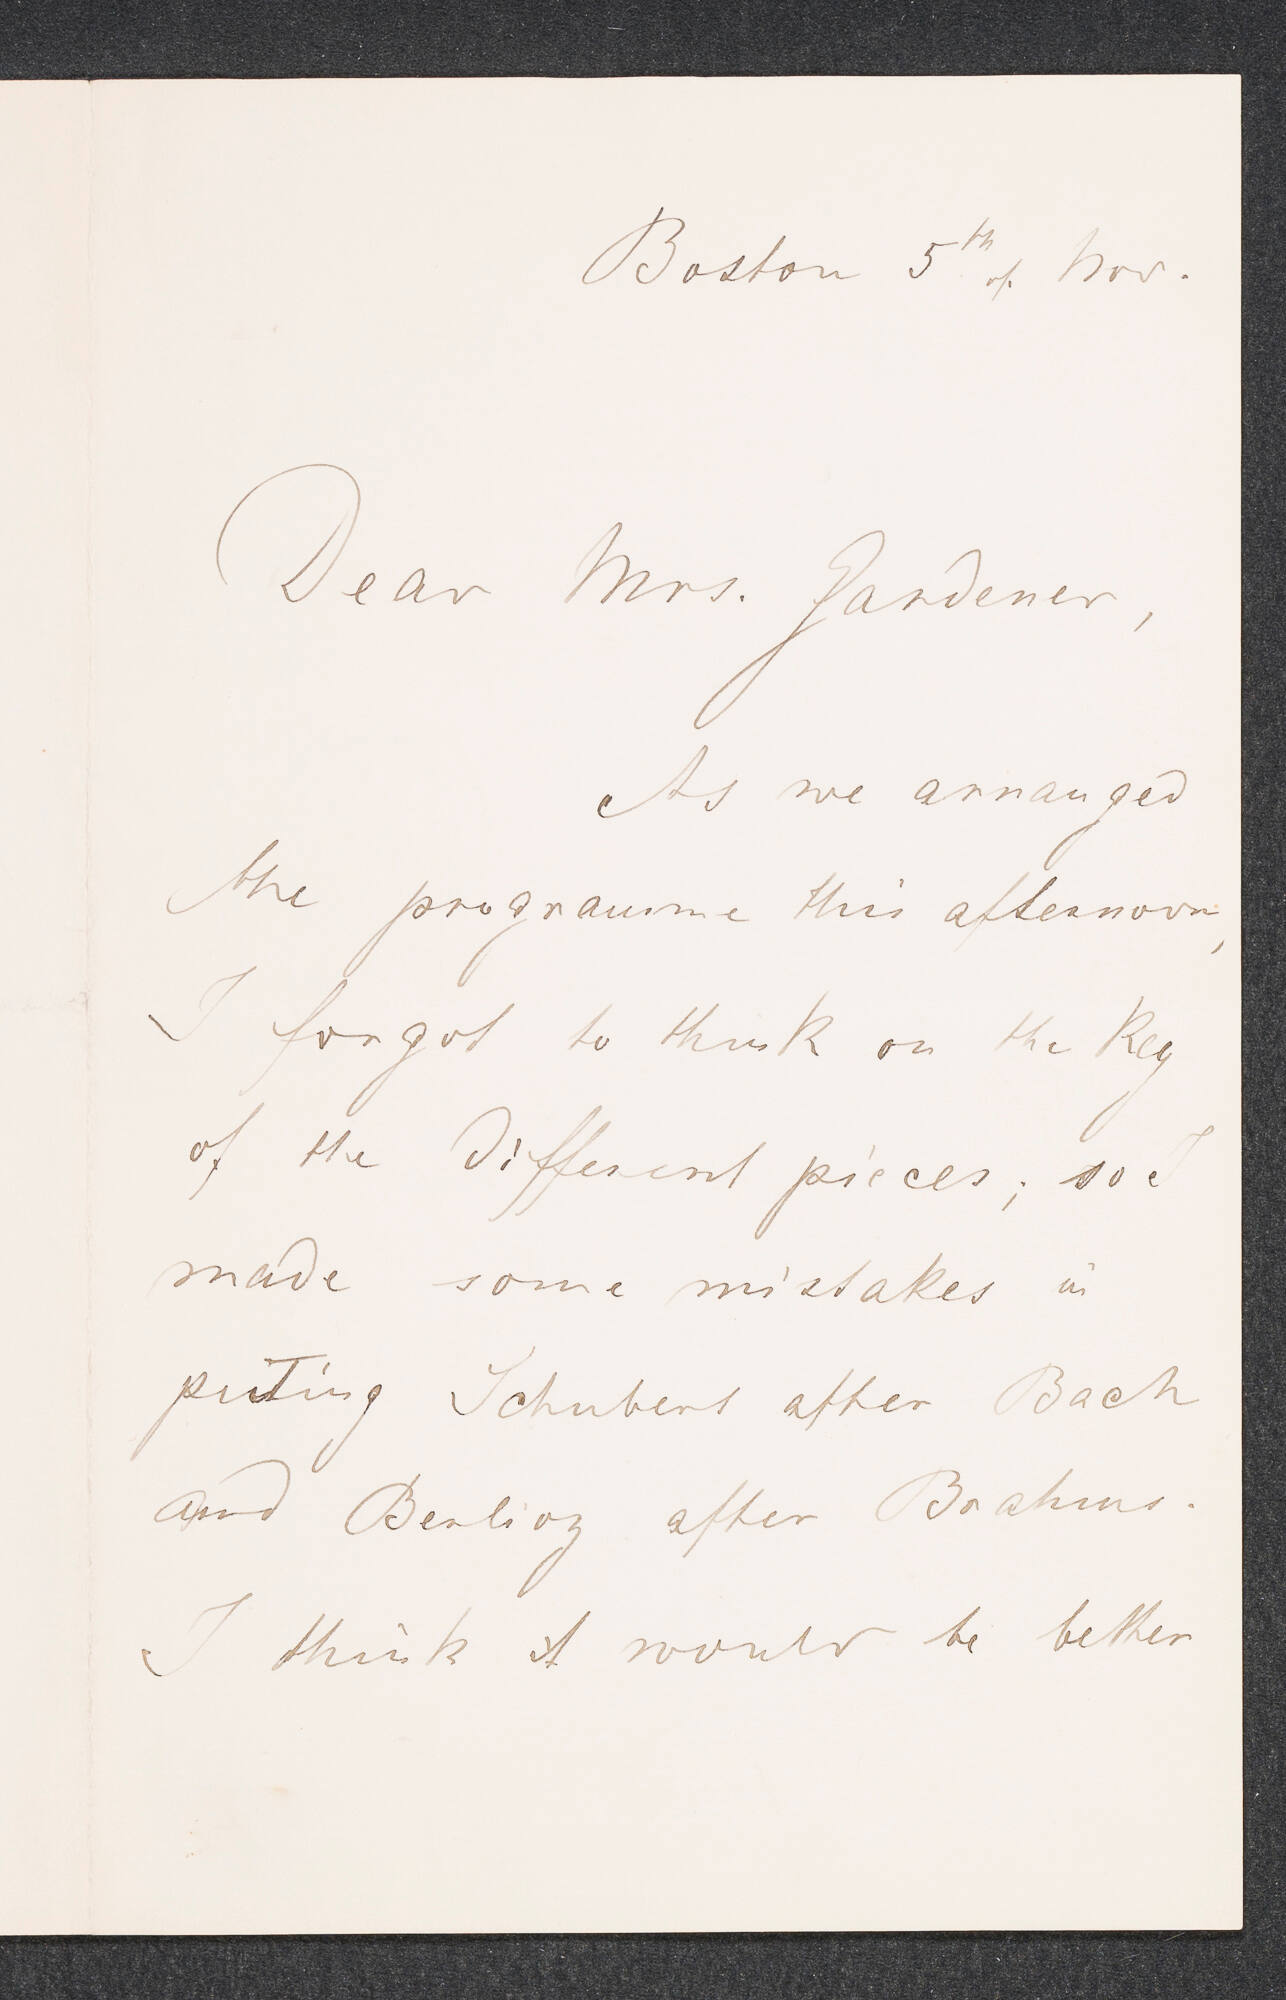 Boston 5th of Nov.
Dear Mrs. Gardener,
As we arranged
the programme this afternoon,
I forgot to think on the Key
of the different pieces; so I
made some mistakes in
puting Schubert after Bach
and Berlioz after Brahms.
I think it would be better